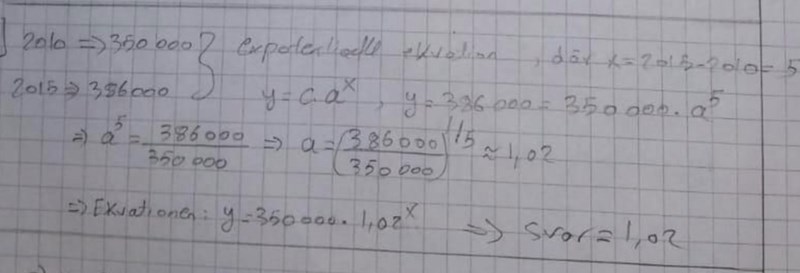 2010 => 350 000 } expotentielle ekvation, där x = 2015-2010 = 5
2015 => 386000 } y = C·a^x, y = 386 000 = 350 000 · a^5
=> a^5 = 386000/350 000 => a = (386000/350 000)^1/5 ≈ 1,02
=> Ekvationen: y = 350 000 · 1,02^x => svar = 1,02